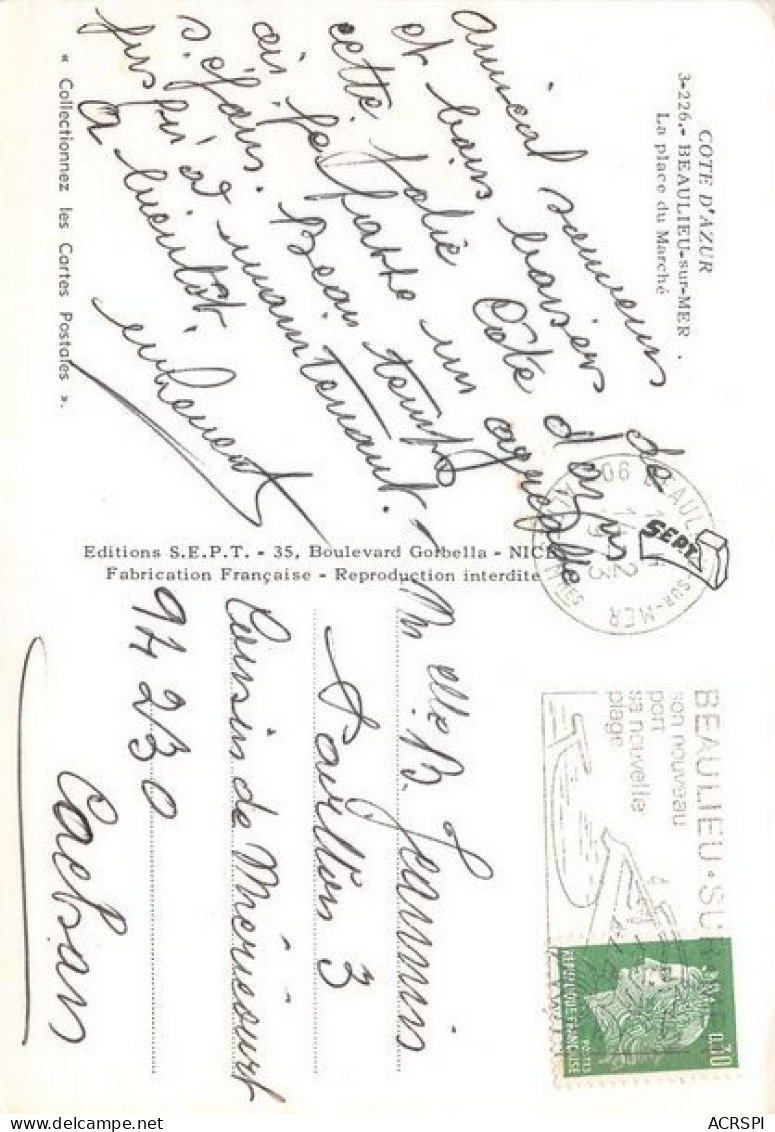 COTE D'AZUR
3-226.- BEAULIEU-sur-MER
La place du Marché
amical souvenir
et bons baisers de
cette jolie Côte d'azur
où je passe un agréable
séjour. Beau temps
jusqu'à maintenant.
A bientôt.
« Collectionnez les Cartes Postales ».
Editions S.E.P.T. - 35, Boulevard Gorbella - NICE
Fabrication Française - Reproduction interdite
SEPT
06 BEAULIEU-SUR-MER
BEAULIEU-SUR
son nouveau
port
sa nouvelle
plage
0,30
REPUBLIQUE FRANÇAISE
POSTES
Melle B. Jeannis
Pavillon 3
Cousin de Méricourt
94230
Cachan
ACRSPI